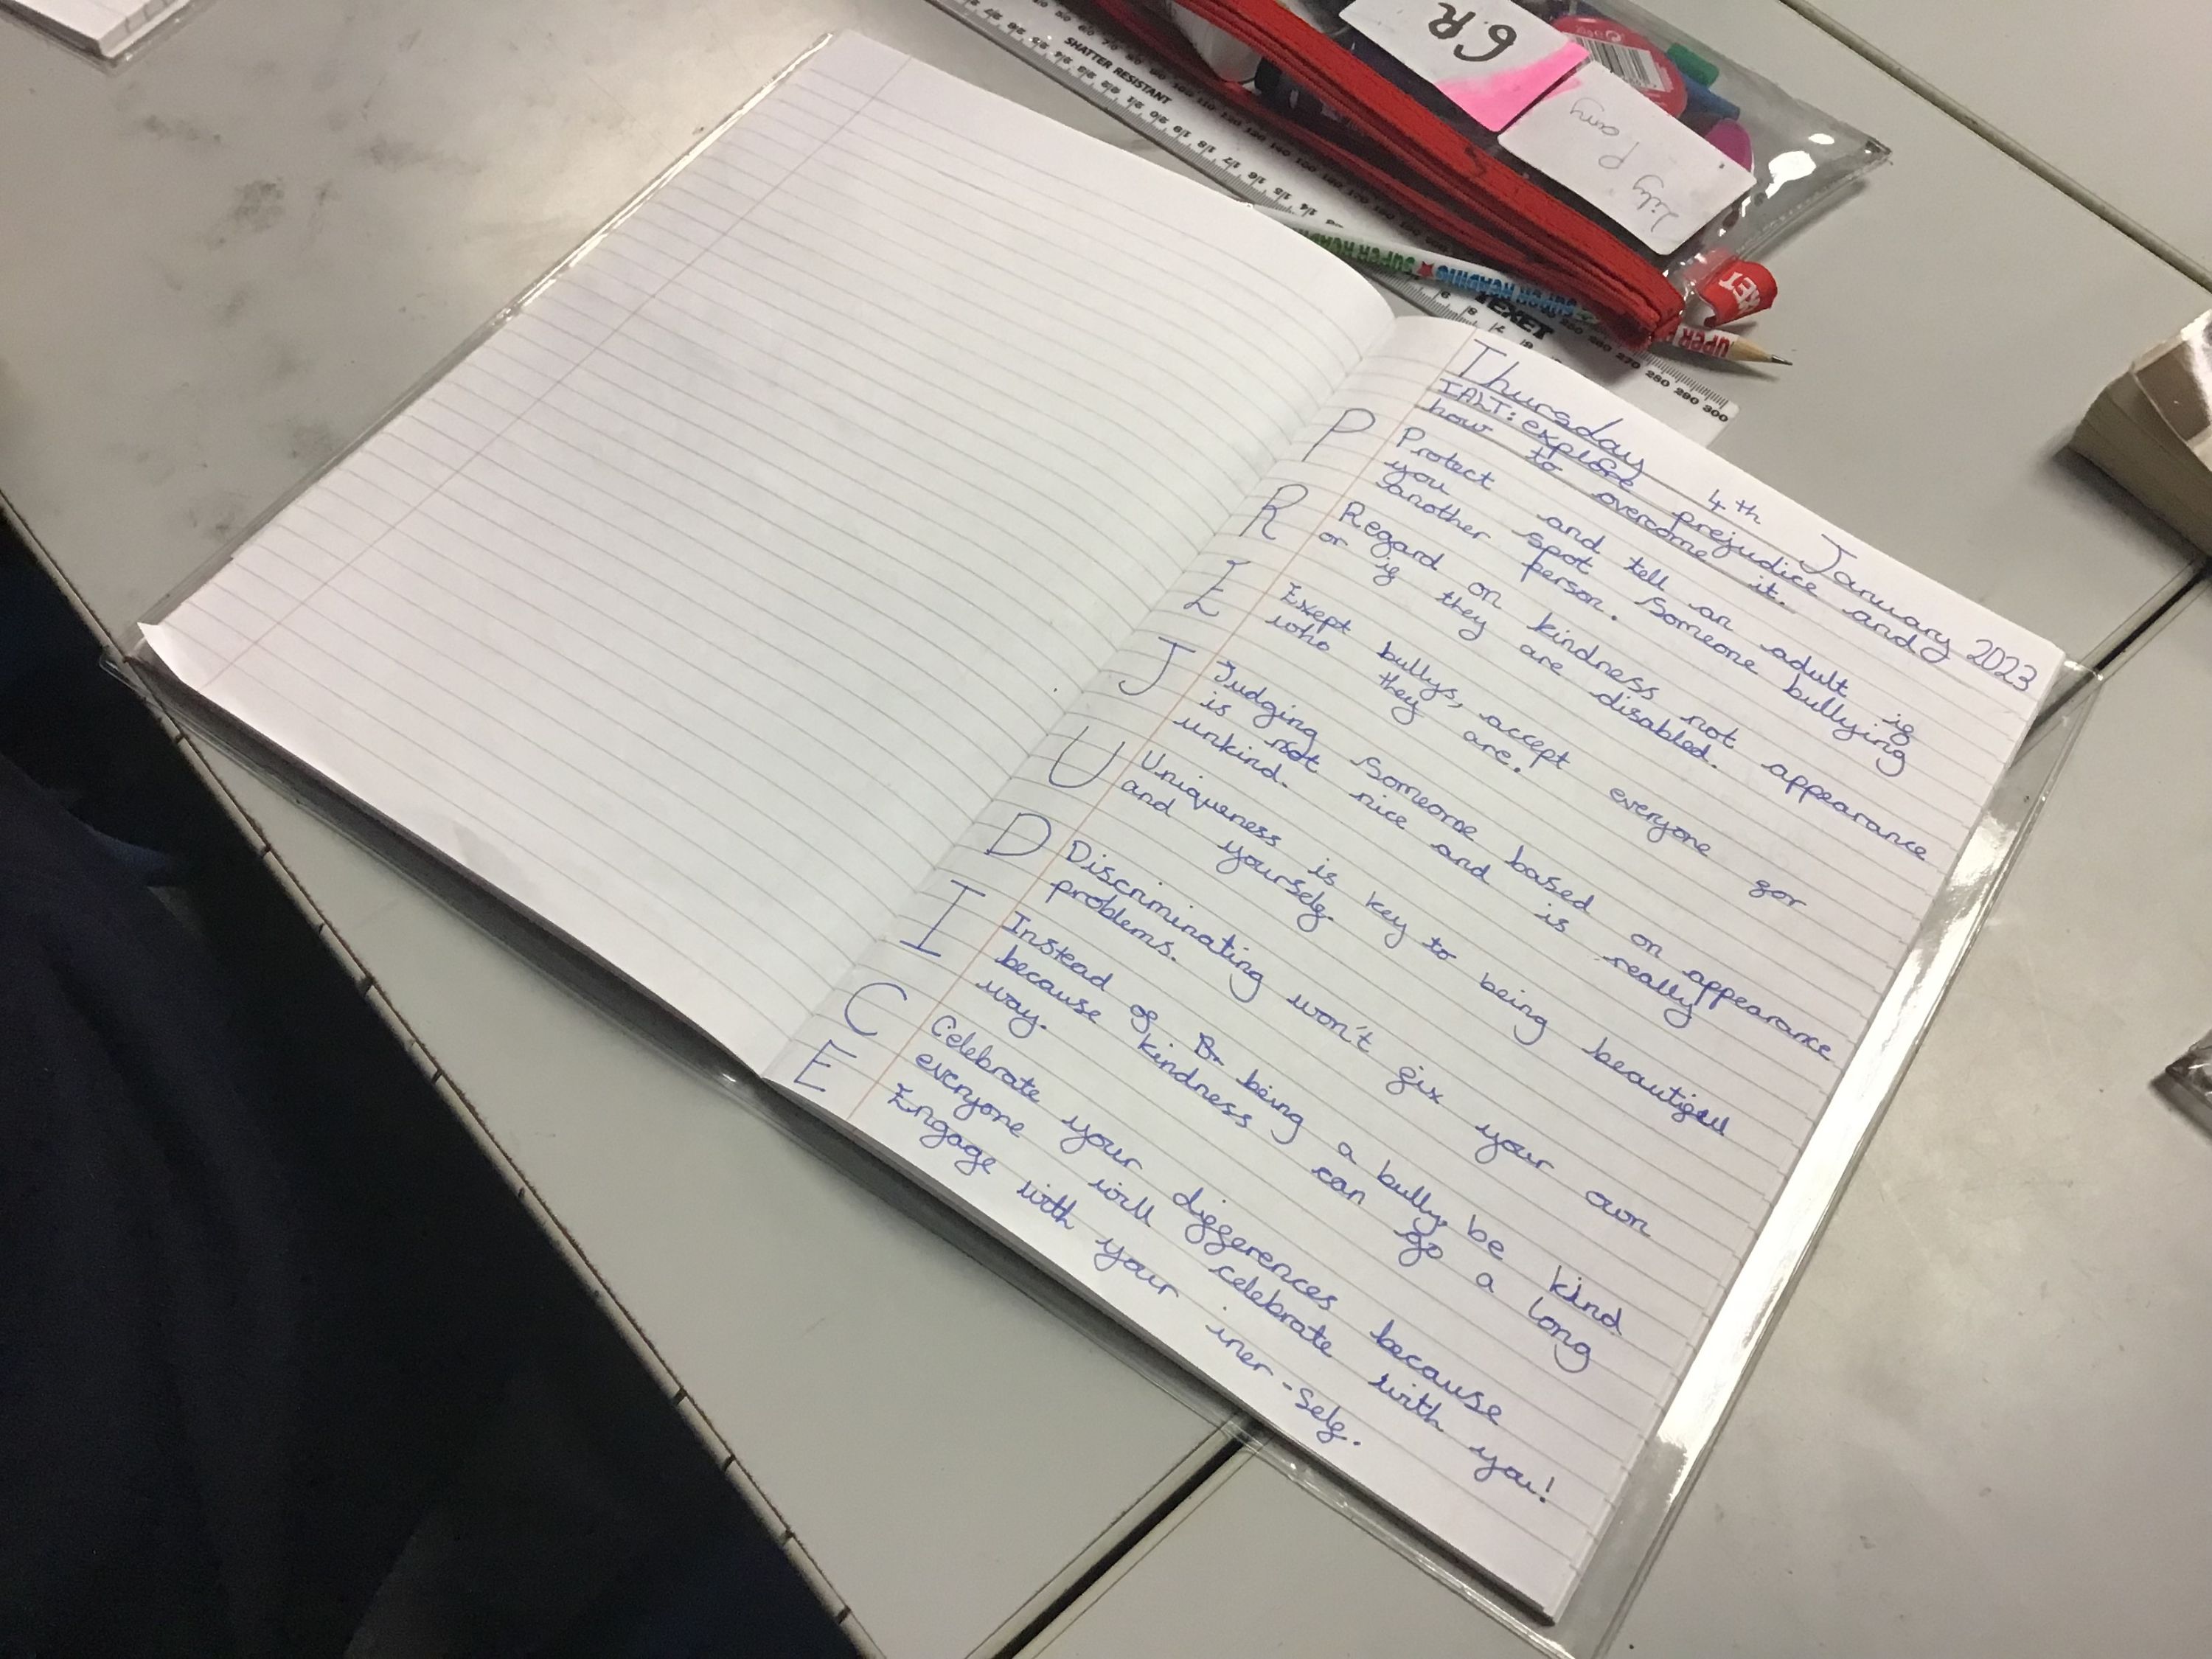 Thursday 4th January 2023
IALT: explore prejudice and
how to overcome it.
P Protect and tell an adult if
you spot someone bullying
another person.
R Regard on kindness not appearance
or if they are disabled.
E Exept bullys, accept everyone for
who they are.
J Judging someone based on appearance
is not nice and is really
unkind.
U Uniqueness is key to being beautiful
and yourself.
D Discriminating won't fix your own
problems.
I Instead of being a bully, be kind
because kindness can go a long
way.
C Celebrate your differences because
everyone will celebrate with you!
E Engage with your iner-self.
6R
Lily P
SHATTER RESISTANT
SUPER READING SUPER READING
TEXET
UPER